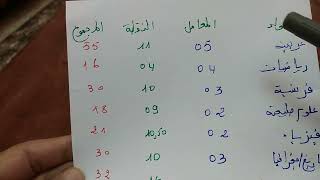 المعامل النقطة المجموع
عربية 05 11 55
رياضيات 04 04 16
فرنسية 03 10 30
علوم طبيعية 02 09 18
فيزياء 02 10,50 21
تاريخ/جغرافيا 03 10 30
32